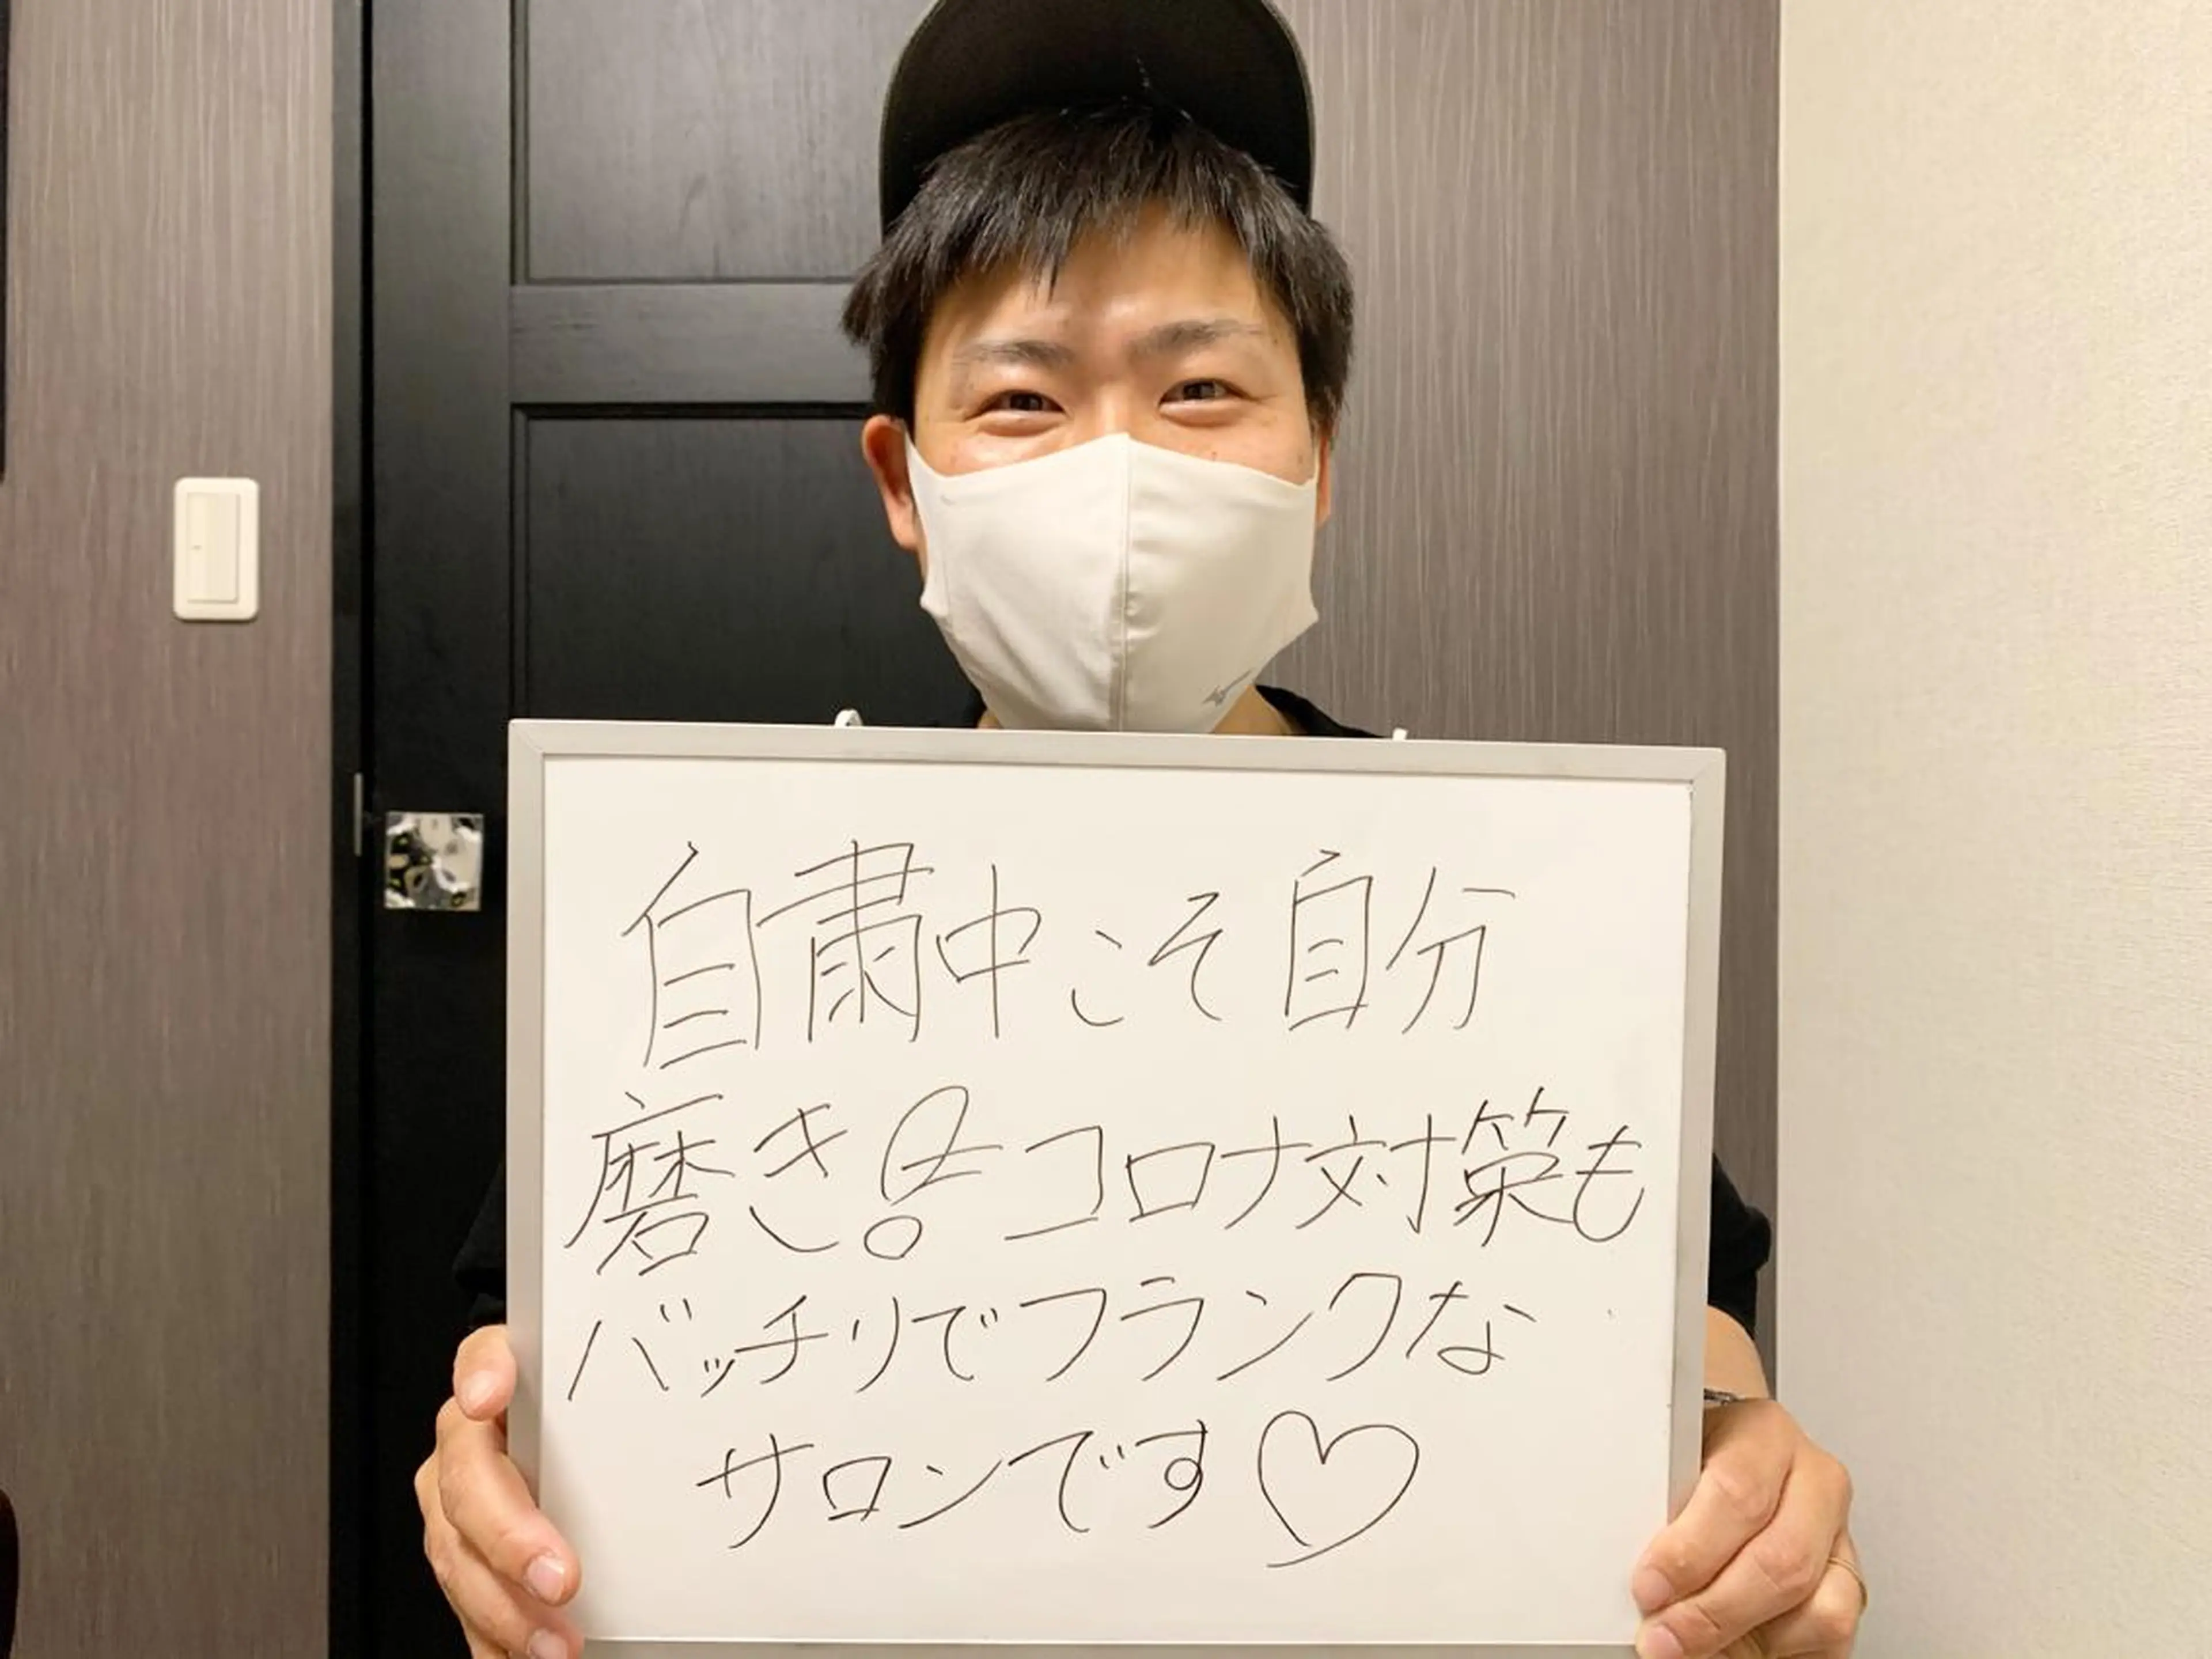 自粛中こそ自分
磨き!コロナ対策も
バッチリでフランクな
サロンです♡